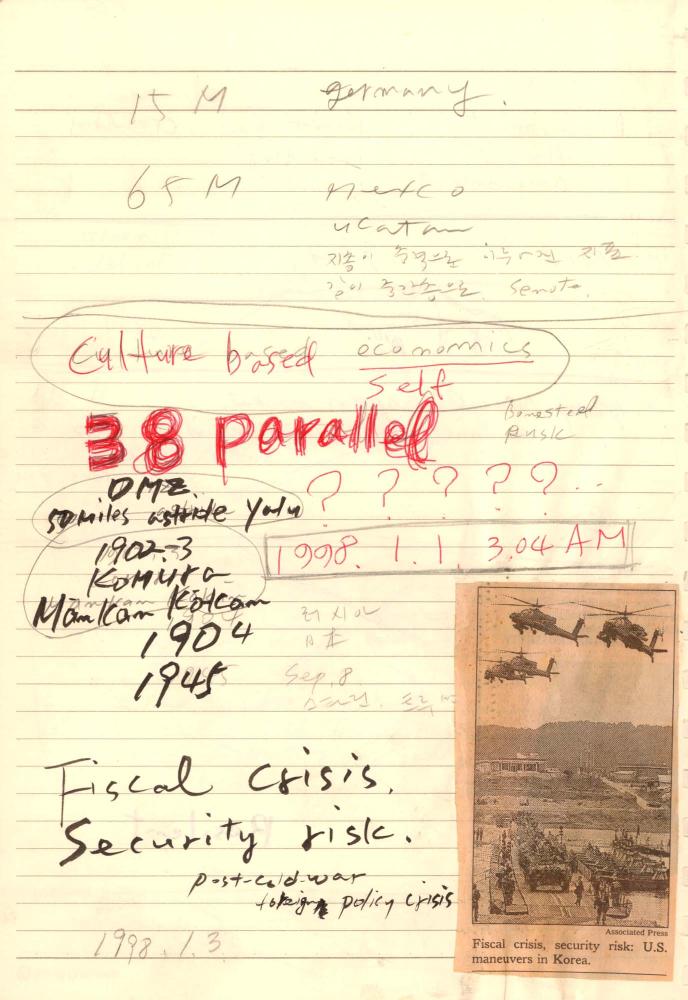 15 M germany.
65 M Mexco
ucatan
지층이 추억으로 지표
깊이 중간층으로. Senote.
Culture based oconomics
Self
38 parallel
Bonesteel
Rusk
DMZ.
50 miles astride Yalu
? ? ? ? ? . .
1902-3
1998. 1. 1. 3.04 AM
Komura
Mankan Kokan
1904 러시아
日本
1945 Sep. 8
스타린.
Fiscal crisis.
Security risk.
post-cold-war
foreign policy crisis
1998. 1. 3.
Associated Press
Fiscal crisis, security risk: U.S.
maneuvers in Korea.